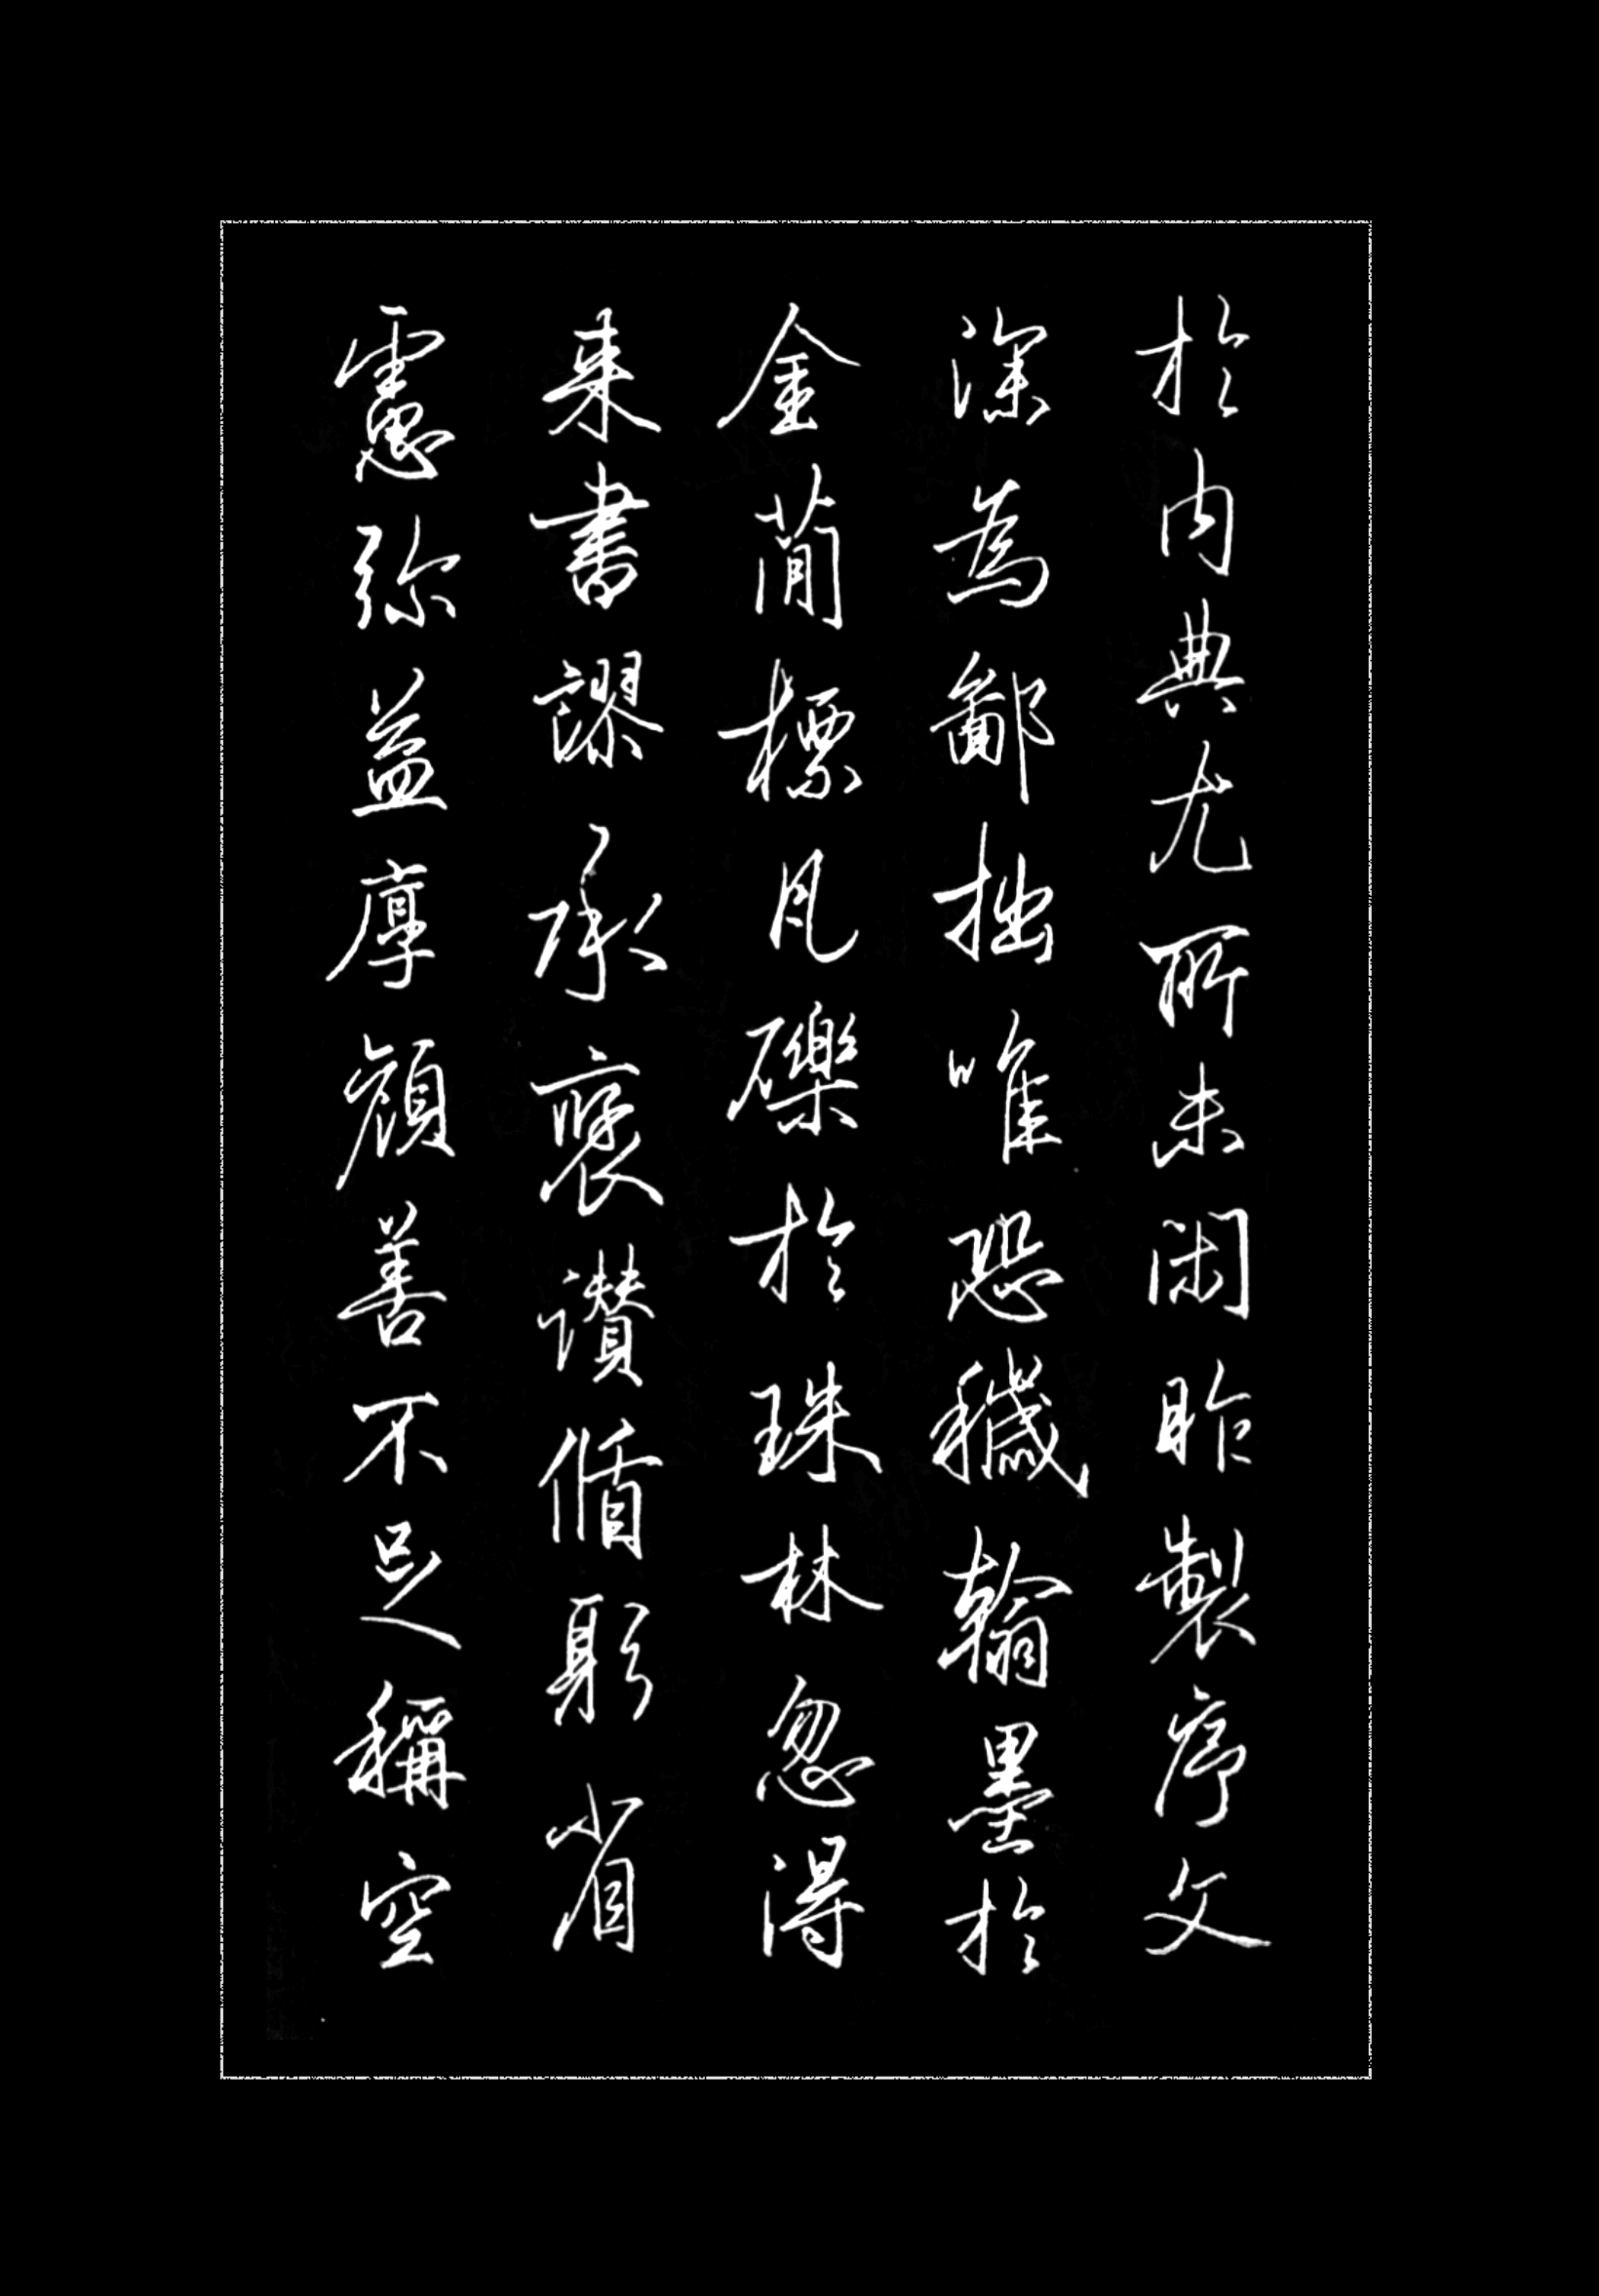 於内典尤所未閑昨製序文
深為鄙拙唯恐穢翰墨於
金簡標瓦礫於珠林忽得
来書謬承褒讚循躬省
慮弥益厚顔善不足稱空